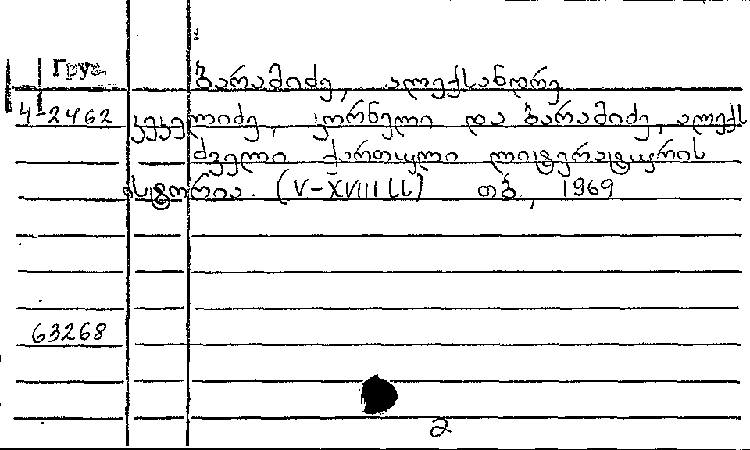 Груз.
ბარამიძე, ალექსანდრე
4-2462
კეკელიძე, კორნელი და ბარამიძე, ალექს
ძველი ქართული ლიტერატურის
ისტორია. (V-XVIII სს) თბ, 1969
63268
2